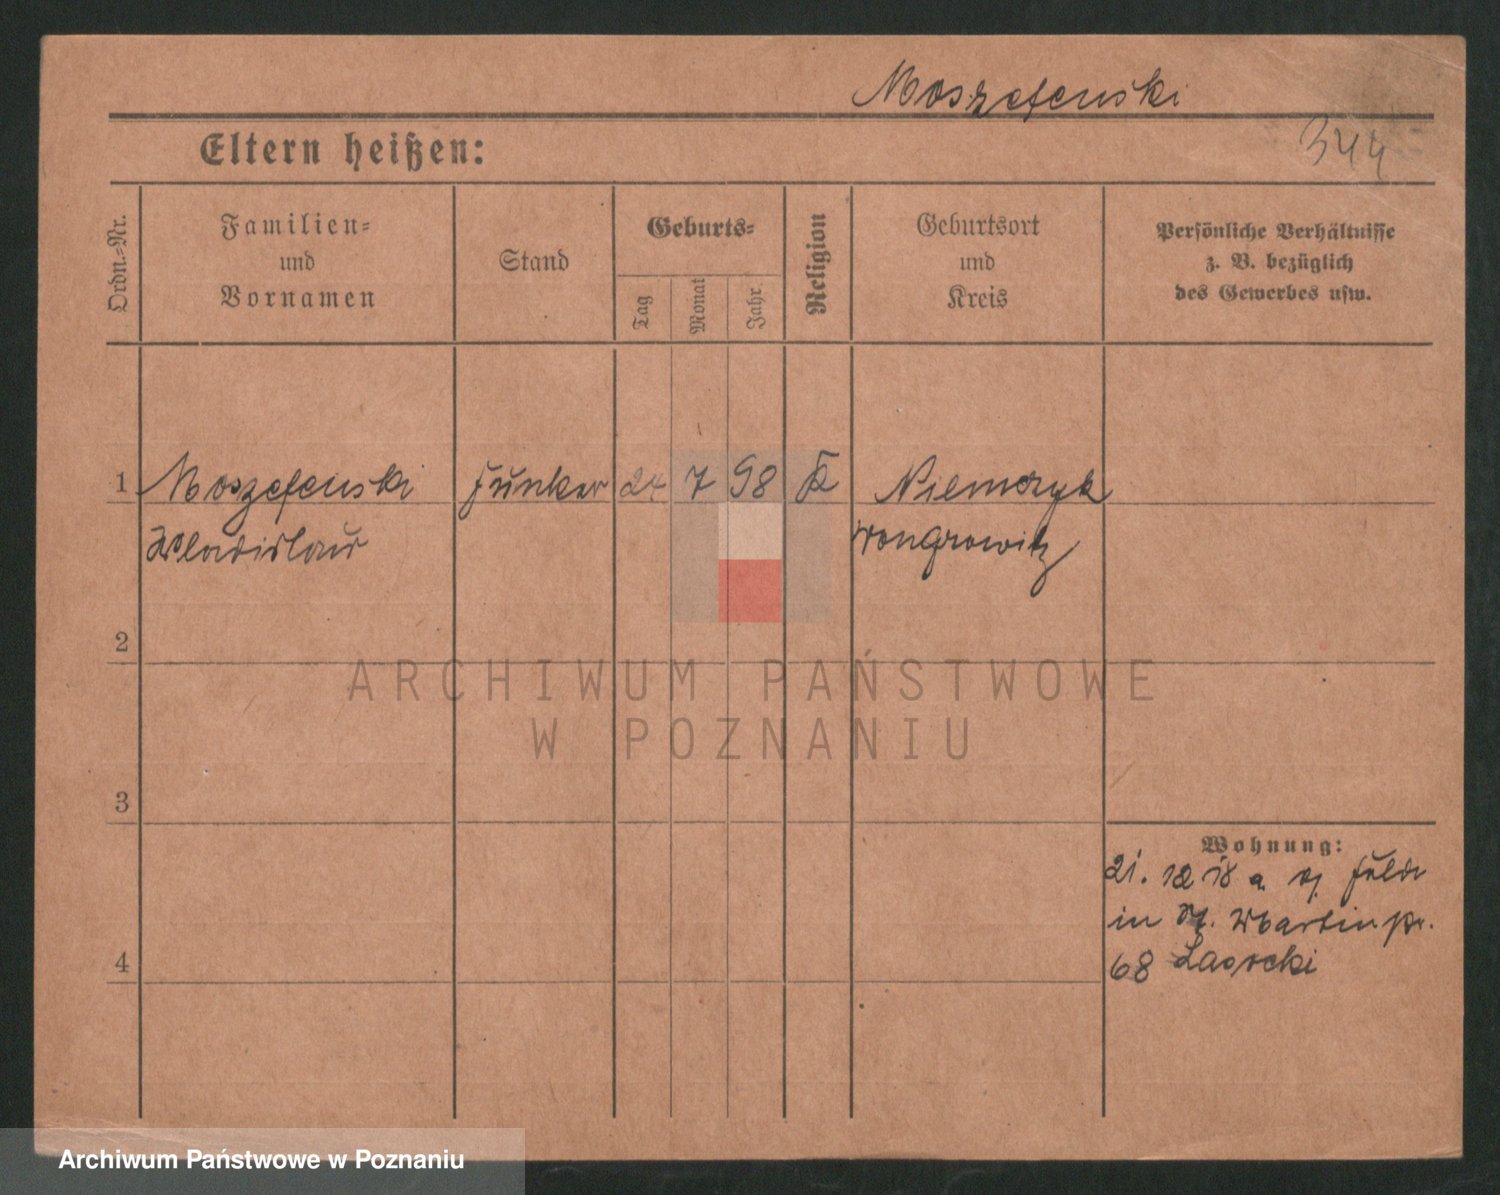 Moszczenski
344
Eltern heißen:
Ordn.-Nr.
Familien-
und
Vornamen
Stand
Geburts-
Tag
Monat
Jahr
Religion
Geburtsort
und
Kreis
Persönliche Verhältnisse
z. B. bezüglich
des Gewerbes usw.
1 Moszczenski Junker 24 7 98 K Niemczyk
Wladislaus Wongrowitz
2
ARCHIWUM PAŃSTWOWE
W POZNANIU
3
Wohnung:
21. 12 18 a.
in St. Martinstr.
4
68 Lasocki
Archiwum Państwowe w Poznaniu